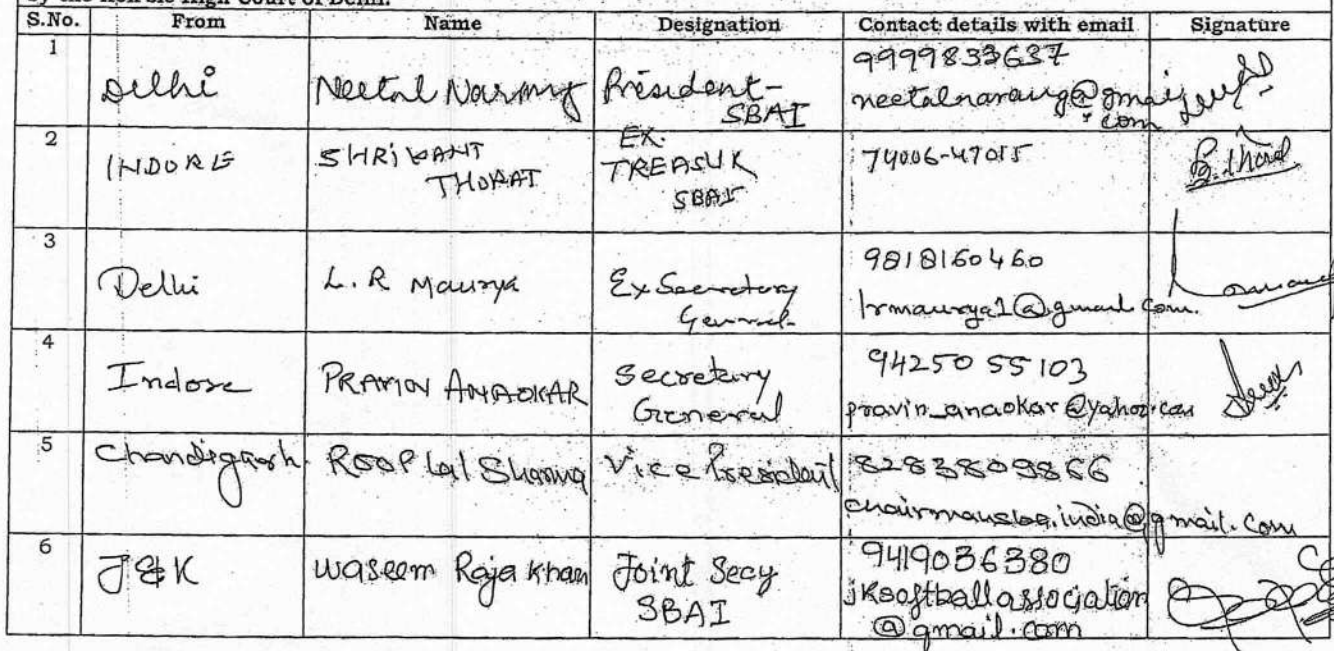 by the Hon'ble High Court of Delhi.
S.No. From Name Designation Contact details with email Signature
1 Delhi Neetal Narang President- SBAI 9999833637 neetalnarang@gmail.com
2 INDORE SHRIKANT THORAT EX. TREASUR SBAI 74006-47015
3 Delhi L.R Maurya Ex Secretary General 9818160460 lrmaurya1@gmail.com.
4 Indore PRAVIN ANAOKAR Secretary General 94250 55103 pravin_anaokar@yahoo.com
5 Chandigarh ROOP Lal Sharma Vice President 8283809866 chairmansba.india@gmail.com
6 J&K Waseem Raja Khan Joint Secy SBAI 9419036380 jksoftballassociation@gmail.com